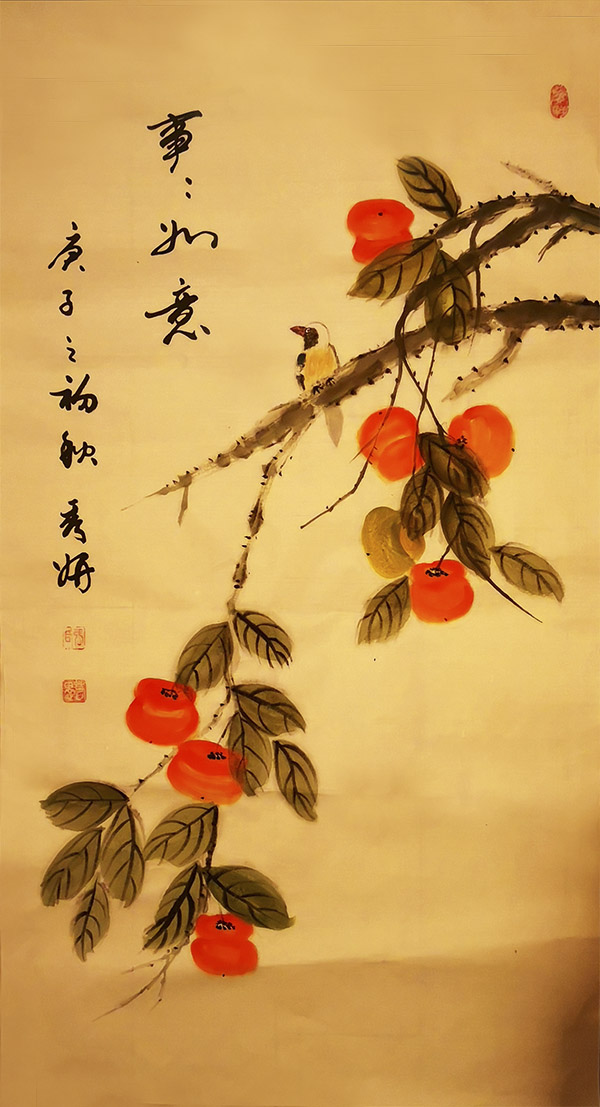 事〻如意
庚子之初秋 秀妍